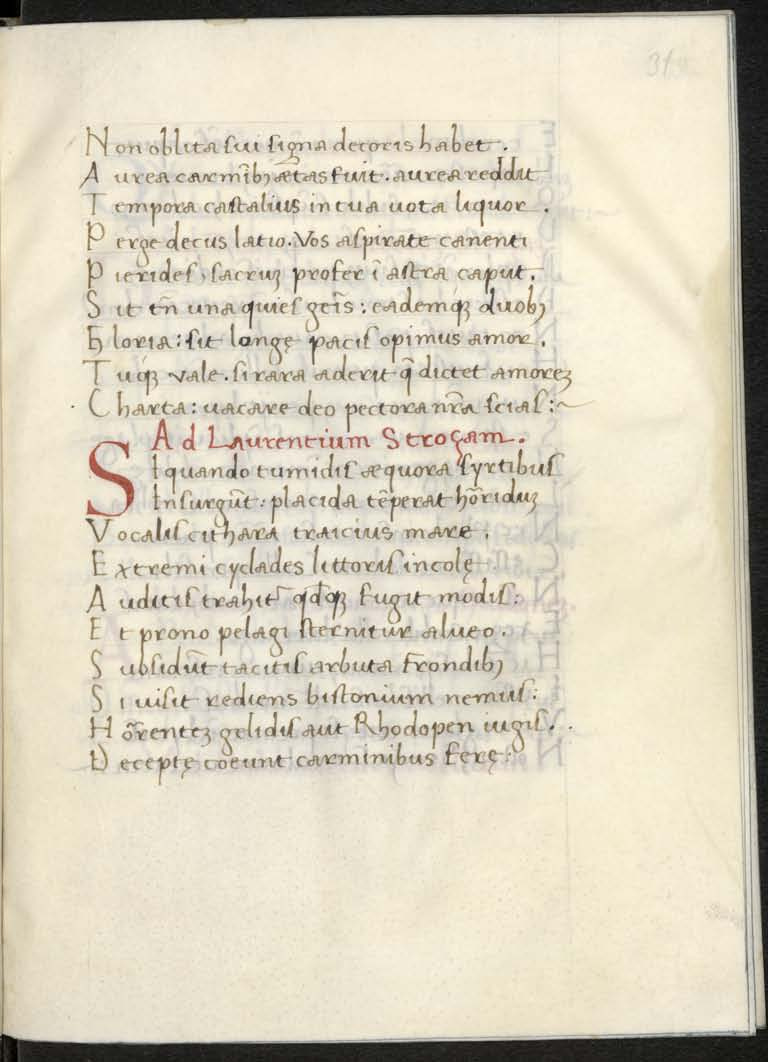 31
Non oblita sui signa decoris habet.
Aurea carmĩbꝫ ætas fuit. aurea reddit
Tempora castalius in tua uota liquor.
Perge decus latio. Vos aspirate canenti
Pierides, sacruꝫ profer ĩ astra caput.
Sit tñ una quies geñis: eademqꝫ duobꝫ
Gloria: sit longę pacis opimus amor.
Tuqꝫ vale. si rara aderit q̃ dictet amoreꝫ
Charta: uacare deo pectora nr̃a scias:~
Ad Laurentium Stroçam.
Si quando tumidis æquora syrtibus
Insurgũt: placida tẽperat hõriduꝫ
Vocalis cithara traicius mare.
Extremi cyclades littoris incolę
Auditis trahit᷑ qdqꝫ fugit modis:
Et prono pelagi sternitur alueo.
Subsidũt tacitis arbuta frondibꝫ
Si uisit rediens bistonium nemus:
Hõrenteꝫ gelidis aut Rhodopen iugis.
Deceptę coeunt carminibus ferę: